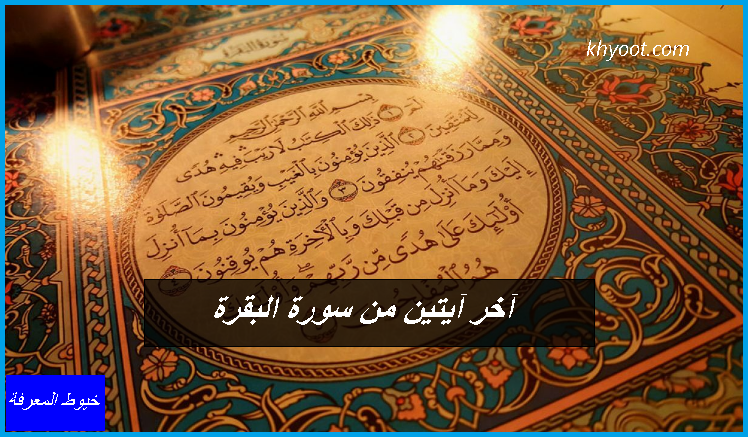 khyoot.com
بِسْمِ اللَّهِ الرَّحْمَٰنِ الرَّحِيمِ
الٓمٓ ١ ذَٰلِكَ ٱلْكِتَٰبُ لَا رَيْبَۛ فِيهِۛ هُدًى
لِّلْمُتَّقِينَ ٢ ٱلَّذِينَ يُؤْمِنُونَ بِٱلْغَيْبِ وَيُقِيمُونَ ٱلصَّلَوٰةَ
وَمِمَّا رَزَقْنَٰهُمْ يُنفِقُونَ ٣ وَٱلَّذِينَ يُؤْمِنُونَ بِمَآ أُنزِلَ
إِلَيْكَ وَمَآ أُنزِلَ مِن قَبْلِكَ وَبِٱلْءَاخِرَةِ هُمْ يُوقِنُونَ ٤
أُو۟لَٰٓئِكَ عَلَىٰ هُدًى مِّن رَّبِّهِمْ
هُمُ
آخر آيتين من سورة البقرة
خيوط المعرفة